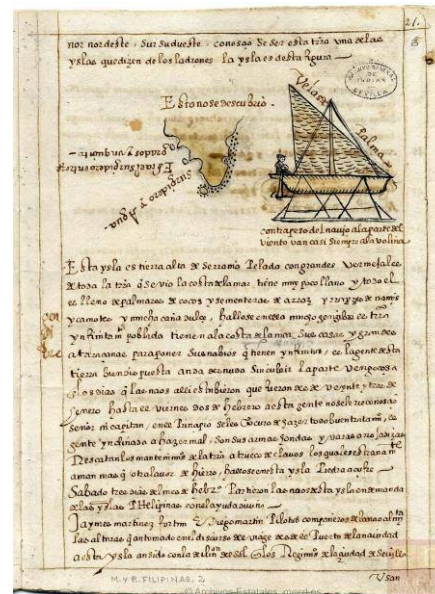 21.
nor nordeste, sur sudueste, conosçio se ser esta trra una de las
yslas que dizen de los ladrones la ysla es desta figura.
Esto no se descubrio.
Velas de
Palma
ARCHIVO GENERAL DE INDIAS SEVILLA
Surgidero y Agua.
grados y un quarto
contrapeso del nauio a la parte del
viento van casi siempre a la volina
Esta ysla es tierra alta de Serrania Pelado con grandes Vermejales
de toda la trra q̃ se vio la costa de la mar tiene muy poco llano y todo el
es lleno de palmares de cocos y sementeras de arroz y de ñames
y camotes y mucha caña dulçe, hallose en ella mucho gengibre es trra
poblada tienen a la costa de la mar, sus casas y grandes
ataraçanas para poner sus nabios q̃ tienen es la gente desta
tierra anda desnudo sin cubrir la parte vergonçosa
los dias q̃ las naos alli estubieron que fueron desde veynte y tres de
henero hasta el viernes dos de hebrero a esta gente no se les reconosçio
señor ni capitan, en el Prinçipio se les Procuro de hazer todo buen tratamiº, es
gente ynclinada a hazer mal, son sus armas fondas y varas arrojadizas
Rescatan los mantenimºs de la trra a trueco de clauos los quales estiman
a man mas q̃ otra lauor de hierro, hallose en esta ysla Piedra açufre
Sabado tres dias del mes de hebrº Partieron las naos desta ysla en demanda
de las yslas Philipinas con la ayuda diuina
Jaymes martinez fortun y Diego martin Pilotos companeros de la nao almtª
las alturas q̃ an tomado en el discurso del viaje desde el Puerto de la nauidad
a esta ysla an sido con la declinaçon del sol de los Regimiºs de la çiudad de Seuilla
Usan
M. y P. FILIPINAS, 2
© Archivos Estatales, mecd.es